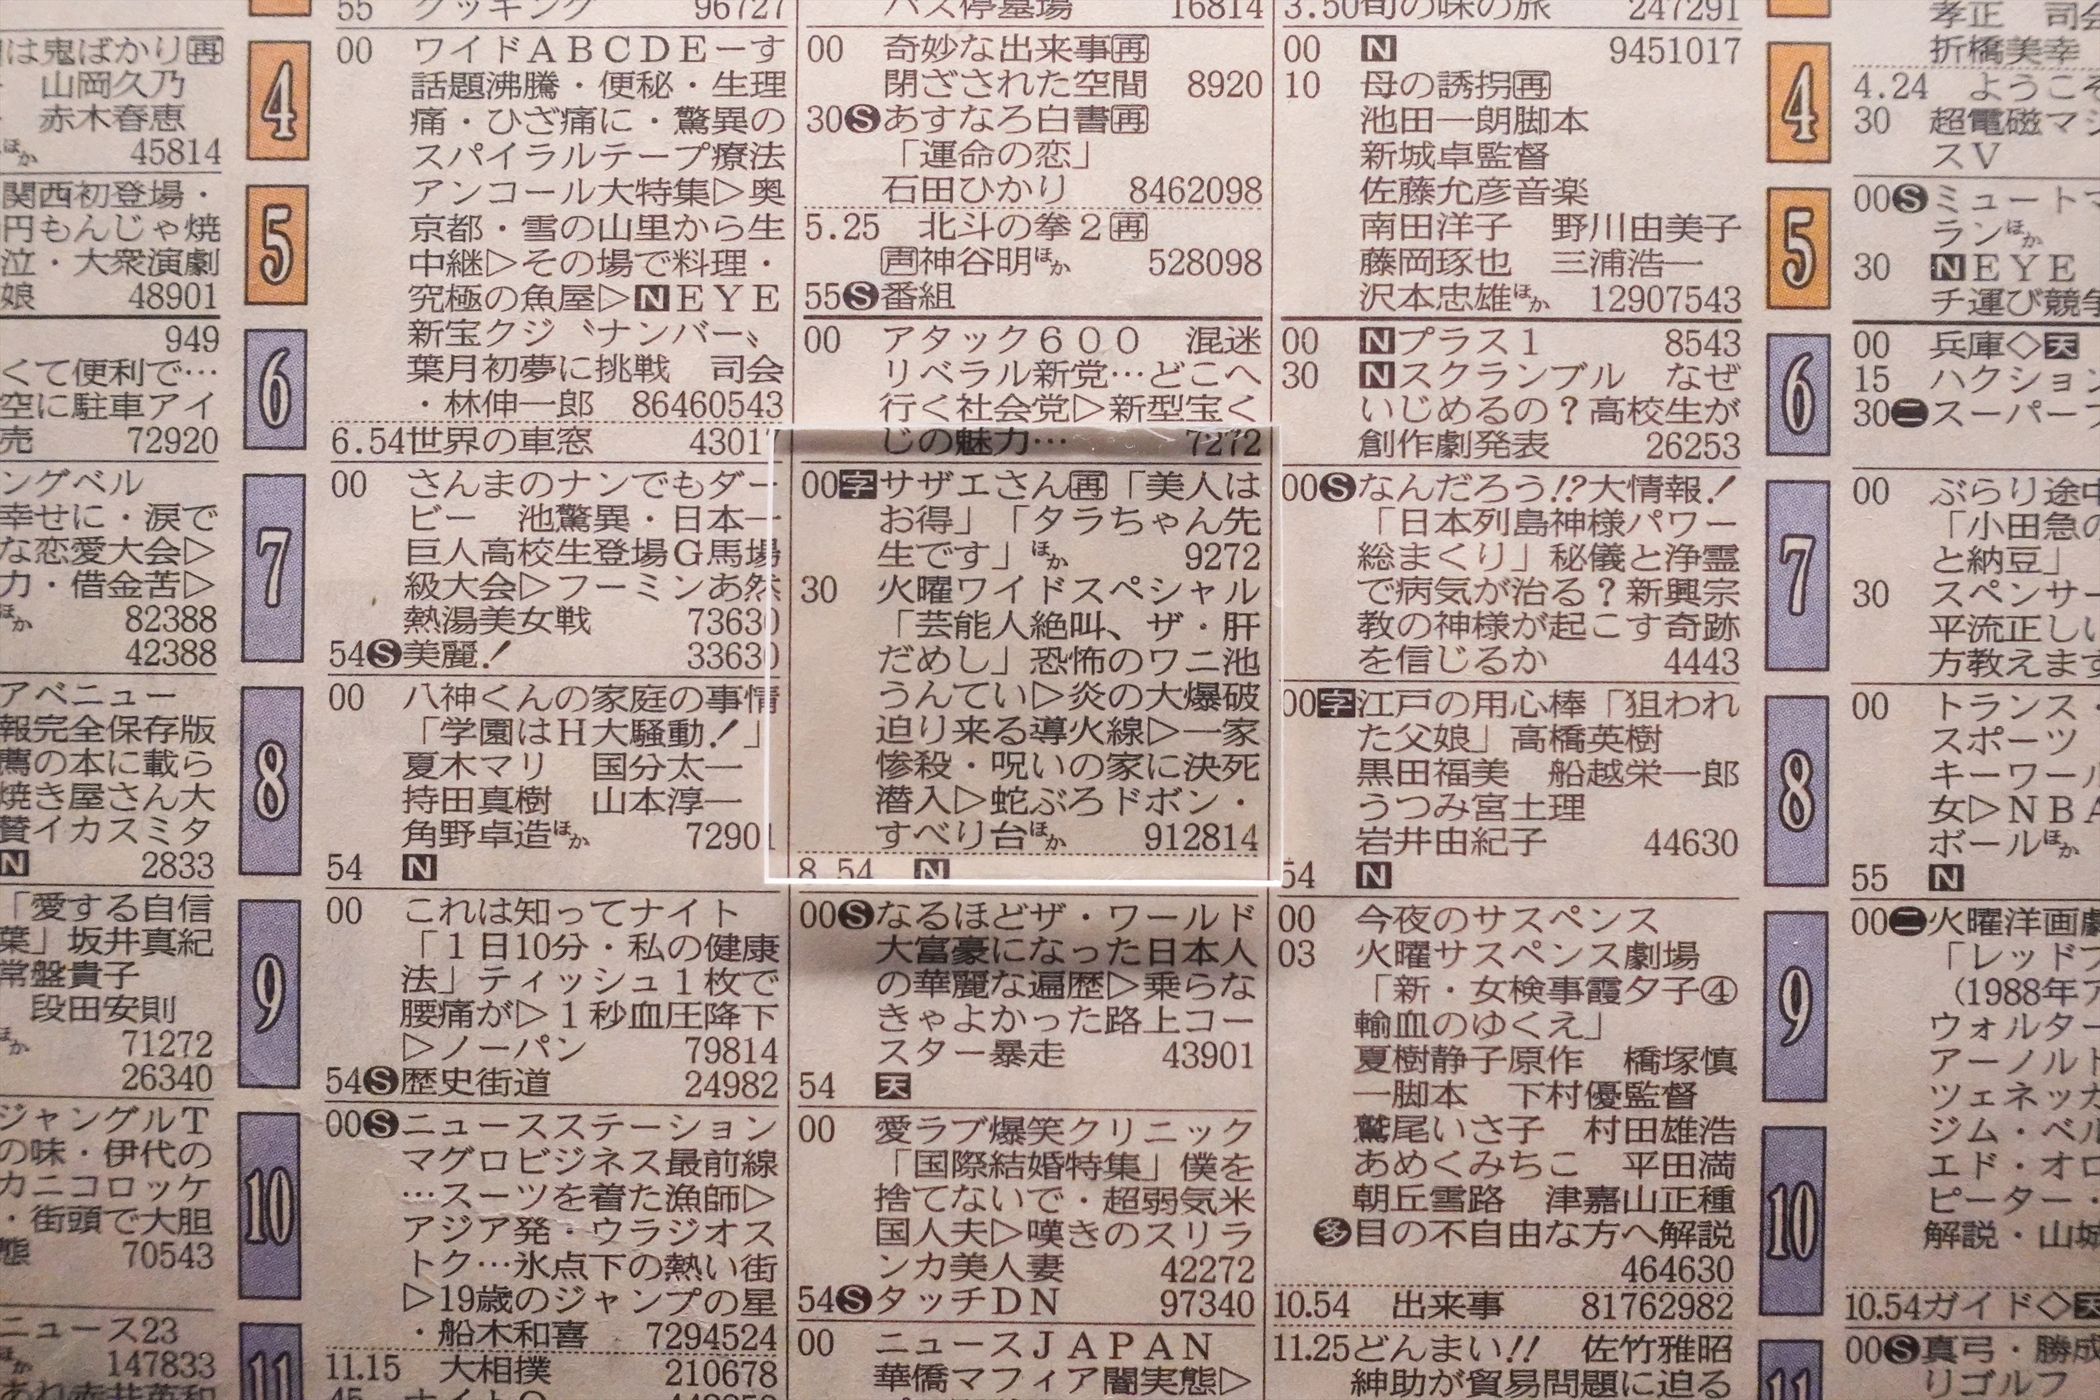 は鬼ばかり再
山岡久乃
赤木春恵
ほか 45814
関西初登場・
円もんじゃ焼
泣・大衆演劇
娘 48901
949
くて便利で…
空に駐車アイ
売 72920
ングベル
幸せに・涙で
な恋愛大会▷
力・借金苦▷
ほか 82388
42388
アベニュー
報完全保存版
薦の本に載ら
焼き屋さん大
賛イカスミタ
N 2833
「愛する自信
葉」坂井真紀
常盤貴子
段田安則
ほか 71272
26340
ジャングルT
の味・伊代の
カニコロッケ
・街頭で大胆
態 70543
ニュース23
ほか 147833
4
5
6
7
8
9
10
11
55 クッキング 96727
00 ワイドABCDEーす
話題沸騰・便秘・生理
痛・ひざ痛に・驚異の
スパイラルテープ療法
アンコール大特集▷奥
京都・雪の山里から生
中継▷その場で料理・
究極の魚屋▷NEYE
新宝クジ〝ナンバー〟
葉月初夢に挑戦 司会
・林伸一郎 86460543
6.54世界の車窓 43017
00 さんまのナンでもダー
ビー 池驚異・日本一
巨人高校生登場G馬場
級大会▷フーミンあ然
熱湯美女戦 73630
54S美麗! 33630
00 八神くんの家庭の事情
「学園はH大騒動!」
夏木マリ 国分太一
持田真樹 山本淳一
角野卓造ほか 72901
54 N
00 これは知ってナイト
「1日10分・私の健康
法」ティッシュ1枚で
腰痛が▷1秒血圧降下
▷ノーパン 79814
54S歴史街道 24982
00Sニュースステーション
マグロビジネス最前線
…スーツを着た漁師▷
アジア発・ウラジオス
トク…氷点下の熱い街
▷19歳のジャンプの星
・船木和喜 7294524
11.15 大相撲 210678
バス停墓場 16814
00 奇妙な出来事再
閉ざされた空間 8920
30Sあすなろ白書再
「運命の恋」
石田ひかり 8462098
5.25 北斗の拳2再
声神谷明ほか 528098
55S番組
00 アタック600 混迷
リベラル新党…どこへ
行く社会党▷新型宝く
じの魅力… 7272
00字サザエさん再「美人は
お得」「タラちゃん先
生です」ほか 9272
30 火曜ワイドスペシャル
「芸能人絶叫、ザ・肝
だめし」恐怖のワニ池
うんてい▷炎の大爆破
迫り来る導火線▷一家
惨殺・呪いの家に決死
潜入▷蛇ぶろドボン・
すべり台ほか 912814
8.54 N
00Sなるほどザ・ワールド
大富豪になった日本人
の華麗な遍歴▷乗らな
きゃよかった路上コー
スター暴走 43901
54 天
00 愛ラブ爆笑クリニック
「国際結婚特集」僕を
捨てないで・超弱気米
国人夫▷嘆きのスリラ
ンカ美人妻 42272
54SタッチDN 97340
00 ニュースJAPAN
華僑マフィア闇実態▷
3.50旬の味の旅 247291
00 N 9451017
10 母の誘拐再
池田一朗脚本
新城卓監督
佐藤允彦音楽
南田洋子 野川由美子
藤岡琢也 三浦浩一
沢本忠雄ほか 12907543
00 Nプラス1 8543
30 Nスクランブル なぜ
いじめるの?高校生が
創作劇発表 26253
00Sなんだろう!?大情報!
「日本列島神様パワー
総まくり」秘儀と浄霊
で病気が治る?新興宗
教の神様が起こす奇跡
を信じるか 4443
00字江戸の用心棒「狙われ
た父娘」高橋英樹
黒田福美 船越栄一郎
うつみ宮土理
岩井由紀子 44630
54 N
00 今夜のサスペンス
03 火曜サスペンス劇場
「新・女検事霞夕子④
輸血のゆくえ」
夏樹静子原作 橋塚慎
一脚本 下村優監督
鷲尾いさ子 村田雄浩
あめくみちこ 平田満
朝丘雪路 津嘉山正種
多目の不自由な方へ解説
464630
10.54 出来事 81762982
11.25どんまい!! 佐竹雅昭
紳助が貿易問題に迫る
4
5
6
7
8
9
10
11
孝正 司会
折橋美幸
4.24 ようこそ
30 超電磁マシ
スV
00Sミュートマ
ランほか
30 NEYE
チ運び競争
00 兵庫◇天
15 ハクション
30二スーパー
00 ぶらり途中
「小田急の
と納豆」
30 スペンサー
平流正しい
方教えます
00 トランス・
スポーツ
キーワール
女▷NBA
ボールほか
55 N
00二火曜洋画劇
「レッドブ
(1988年ア
ウォルター
アーノルド
ツェネッガ
ジム・ベル
エド・オロ
ピーター・
解説・山城
10.54ガイド◇天
00S真弓・勝成
りゴルフ